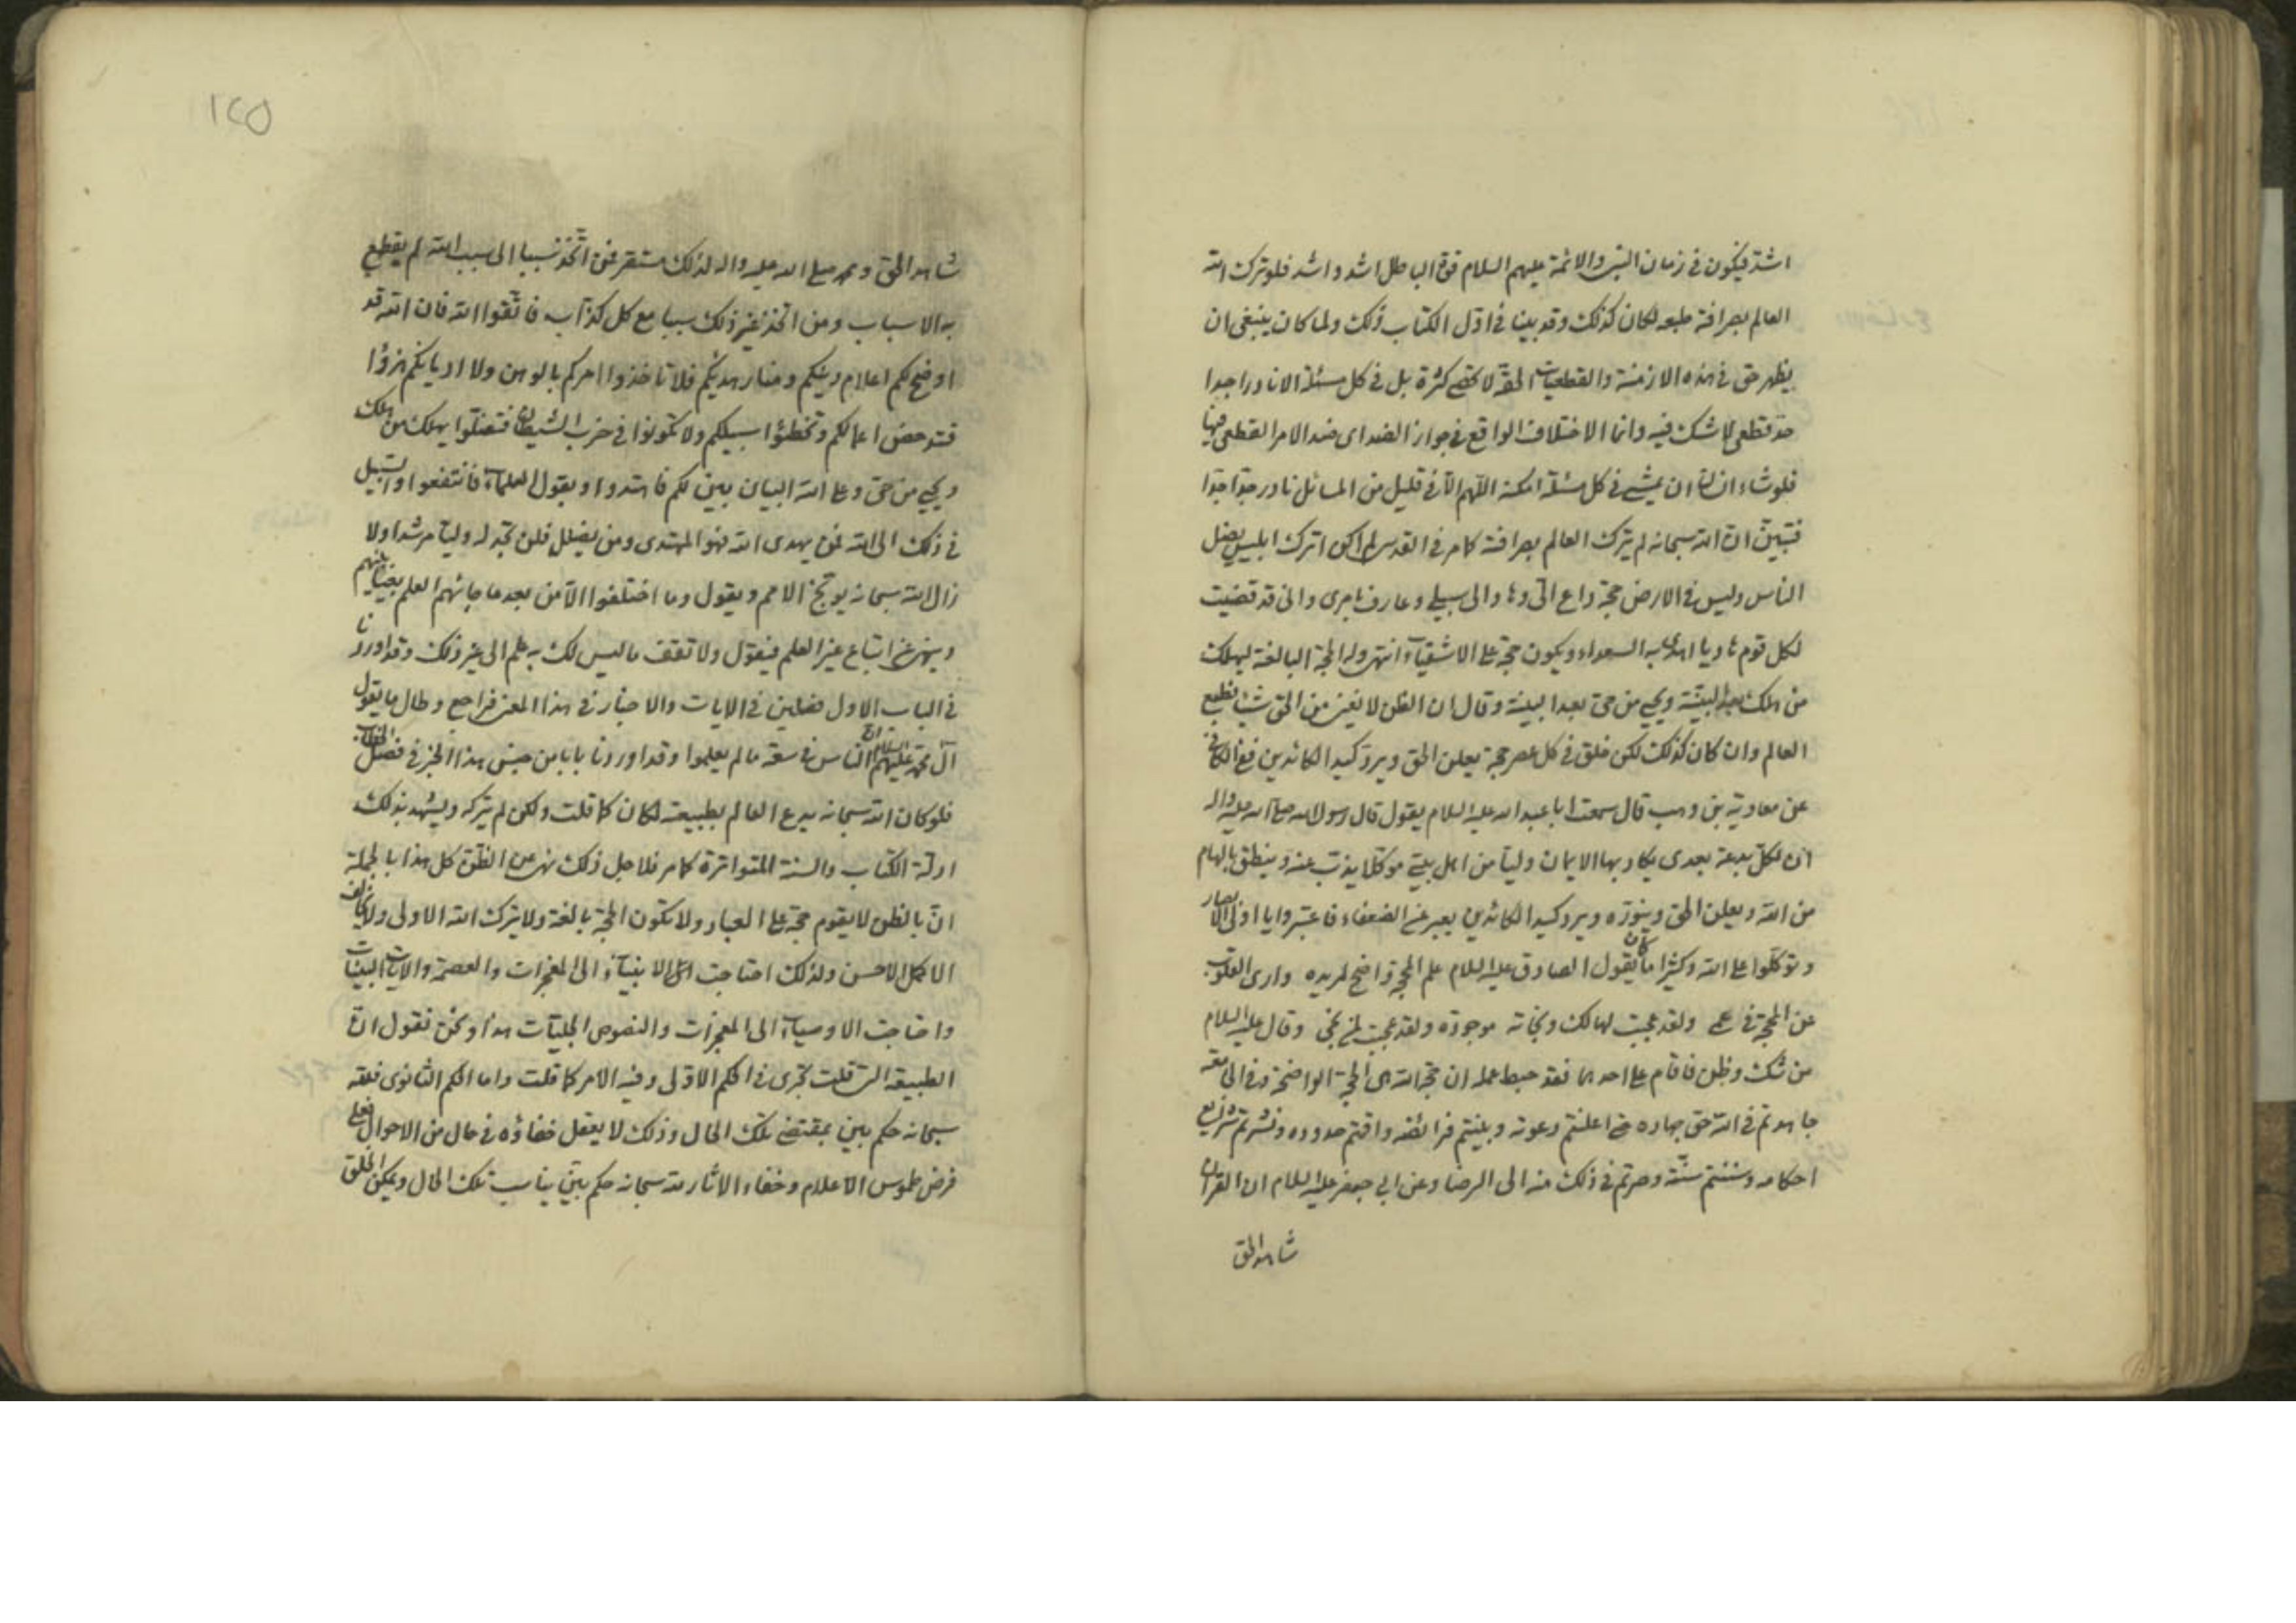 اشد فيكون في زمان النبي والائمة عليهم السلام قوة الباطل اشد واشد فلو ترك الله
العالم بصرافة طبعه لكان كذلك وقد بينا في اول الكتاب ذلك ولما كان ينبغي ان
يظهر حق في هذه الازمنة والقطعيات الحقة لا تحصى كثرة بل في كل مسئلة الا نادرا جدا
حد قطعي لا شك فيه وانما الاختلاف الواقع في جواز الضد اى ضد الامر القطعي فيها
فلو شاء انسان ان يمشي في كل مسئلة امكنه اللهم الا في قليل من المسائل نادر جدا جدا
فتبين ان الله سبحانه لم يترك العالم بصرافته كما مر في القدسي لم اكن اترك ابليس يضل
الناس وليس في الارض حجة وداع الي وهاد الى سبيلي وعارف بامرى واني قد قضيت
لكل قوم هاديا اهدى به السعداء ويكون حجة على الاشقياء انتهى وله الحجة البالغة ليهلك
من هلك بعد البينة ويحيى من حي بعد البينة وقال ان الظن لا يغني من الحق شيئا فطبع
العالم وان كان كذلك لكن خلق في كل عصر حجة يعلن الحق ويرد كيد الكائدين ففي الكافي
عن معاوية بن وهب قال سمعت ابا عبد الله عليه السلام يقول قال رسول الله صلى الله عليه واله
ان لكل بدعة بعدى يكاد بها الايمان وليا من اهل بيتي موكلا يذب عنه وينطق بالهام
من الله ويعلن الحق وينوره ويرد كيد الكائدين يعبر عن الضعفاء فاعتبروا يا اولى الابصار
وتوكلوا على الله وكثيرا ما كان يقول الصادق عليه السلام علم المحجة واضح لمريده وارى القلوب
عن المحجة في عمى ولقد عجبت لهالك ونجاته موجودة ولقد عجبت لمن نجى وقال عليه السلام
من شك وظن فاقام على احدهما فقد حبط عمله ان حجة الله هى الحجة الواضحة وفي الجامعة
جاهدتم في الله حق جهاده حتى اعلنتم دعوته وبينتم فرائضه واقمتم حدوده ونشرتم شرايع
احكامه وسننتم سنته وصرتم في ذلك منه الى الرضا وعن ابي جعفر عليه السلام ان القران
شاهد الحق
١٢٥
شاهد الحق ومحمد صلى الله عليه واله لذلك مستقر فمن اتخذ سببا الى سبب الله لم يقطع
به الاسباب ومن اتخذ غير ذلك سببا مع كل كذاب فاتقوا الله فان الله قد
اوضح لكم اعلام دينكم ومنار هديكم فلا تاخذوا امركم بالوهن ولا اديانكم هزؤا
فتدحض اعمالكم وتخطؤا سبيلكم ولا تكونوا في حزب الشيطان فتضلوا يهلك من هلك
ويحيى من حي وعلى الله البيان بين لكم فاهتدوا وبقول العلماء فانتفعوا والسبيل
في ذلك الى الله فمن يهدى الله فهو المهتدى ومن يضلل فلن تجد له وليا مرشدا ولا
زال الله سبحانه يوبخ الامم ويقول وما اختلفوا الا من بعد ما جائهم العلم بغيا بينهم
وينهى عن اتباع غير العلم فيقول ولا تقف ما ليس لك به علم الى غير ذلك وقد اوردنا
في الباب الاول فصلين في الايات والاخبار في هذا المعنى فراجع وطال ما يقول
آل محمد عليهم السلام ان الناس في سعة ما لم يعلموا وقد اوردنا بابا من جنس هذا الخبر في فصل الخطاب
فلو كان الله سبحانه يدع العالم بطبيعته لكان كما قلت ولكن لم يتركه ويشهد بذلك
ادلة الكتاب والسنة المتواترة كما مر فلاجل ذلك نهى عن الظن كل هذا بالجملة
ان بالظن لا يقوم حجة على العباد ولا تكون الحجة بالغة ولا يترك الله الاولى ولا يخالف
الاكمل الاحسن ولذلك احتاجت الانبياء الى المعجزات والعصمة والآيات البينات
واحتاجت الاوصياء الى المعجزات والنصوص الجليات هذا ونحن نقول ان
الطبيعة التي قلت تجرى في الحكم الاولى وفيه الامر كما قلت واما الحكم الثانوى فلله
سبحانه حكم بين بمقتضى تلك الحال وذلك لا يعقل خفاؤه في حال من الاحوال فعلى
فرض طموس الاعلام وخفاء الاثار لله سبحانه حكم بين يناسب تلك الحال ويمكن الخلق